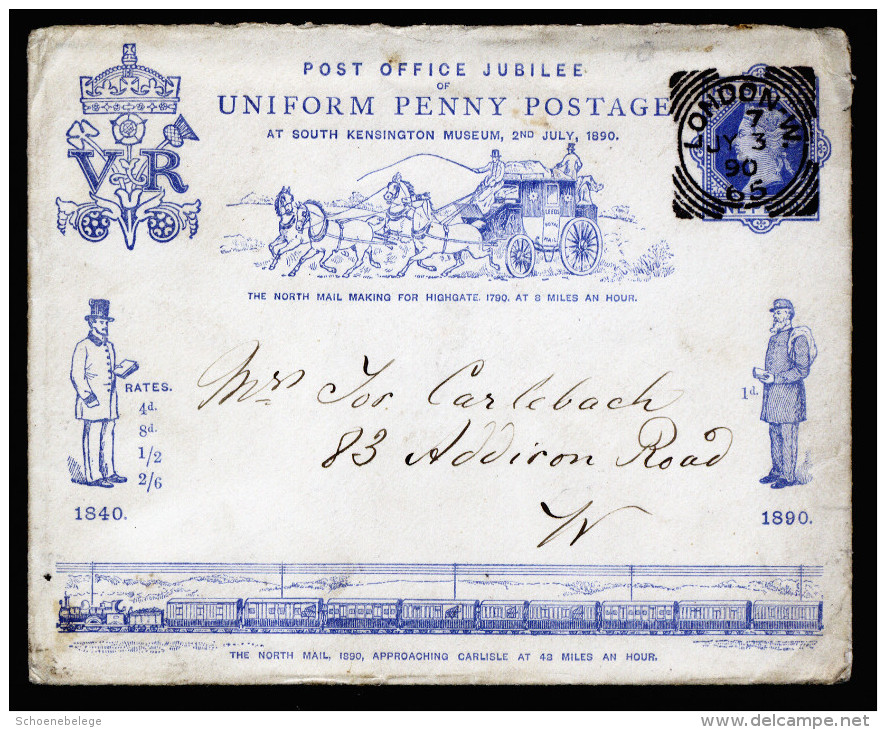 POST OFFICE JUBILEE
OF
UNIFORM PENNY POSTAGE
AT SOUTH KENSINGTON MUSEUM, 2ND JULY, 1890.
LONDON.W.
7
JY 3
90
65
V R
LEEDS
ROYAL
MAIL
THE NORTH MAIL MAKING FOR HIGHGATE, 1790, AT 8 MILES AN HOUR.
RATES.
4d.
8d.
1/2
2/6
1840.
1d.
1890.
Mrs Jos Carlebach
83 Addison Road
W
THE NORTH MAIL, 1890, APPROACHING CARLISLE AT 48 MILES AN HOUR.
Schoenebelege
delcampe.net